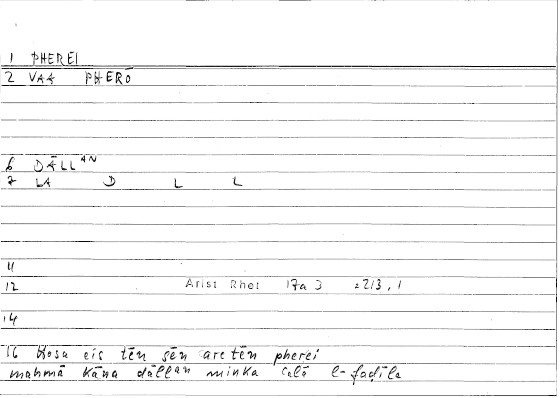 1 PHEREI
2 VA4 PHERŌ
6 DĀLLᴬᴺ
7 LA D L L
11
12 Arist Rhet 17a 3 :213,1
14
16 Hosa eis tēn sēn aretēn pherei
mahmā kāna dāllᵃⁿ minka calā l-faḍīla